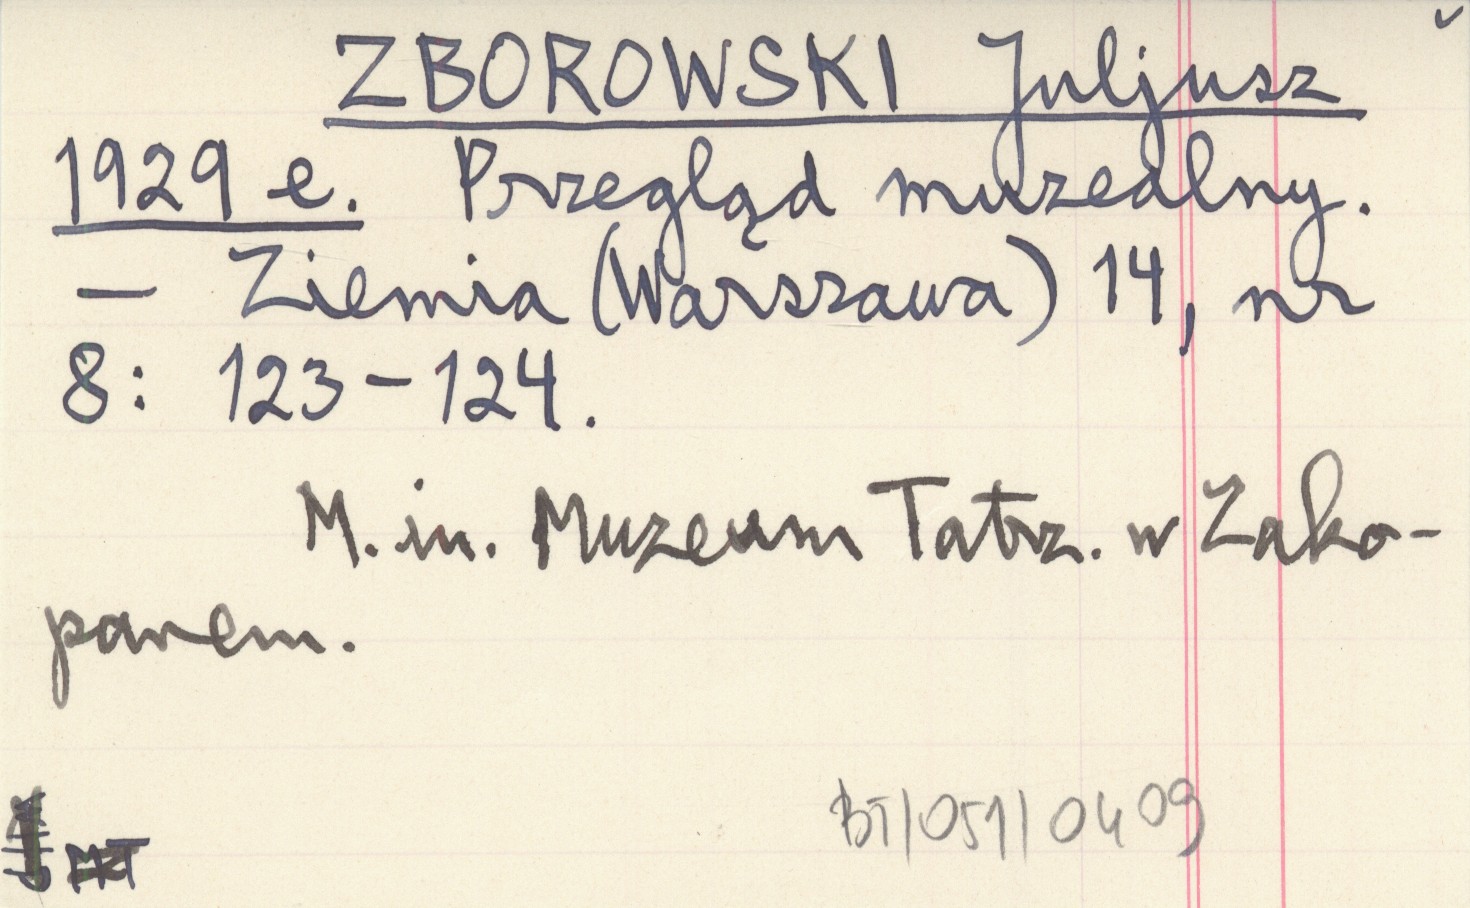 ZBOROWSKI Juljusz
1929 e. Przegląd muzealny.
— Ziemia (Warszawa) 14, nr
8: 123-124.
M. in. Muzeum Tatrz. w Zako-
panem.
BT/051/0409